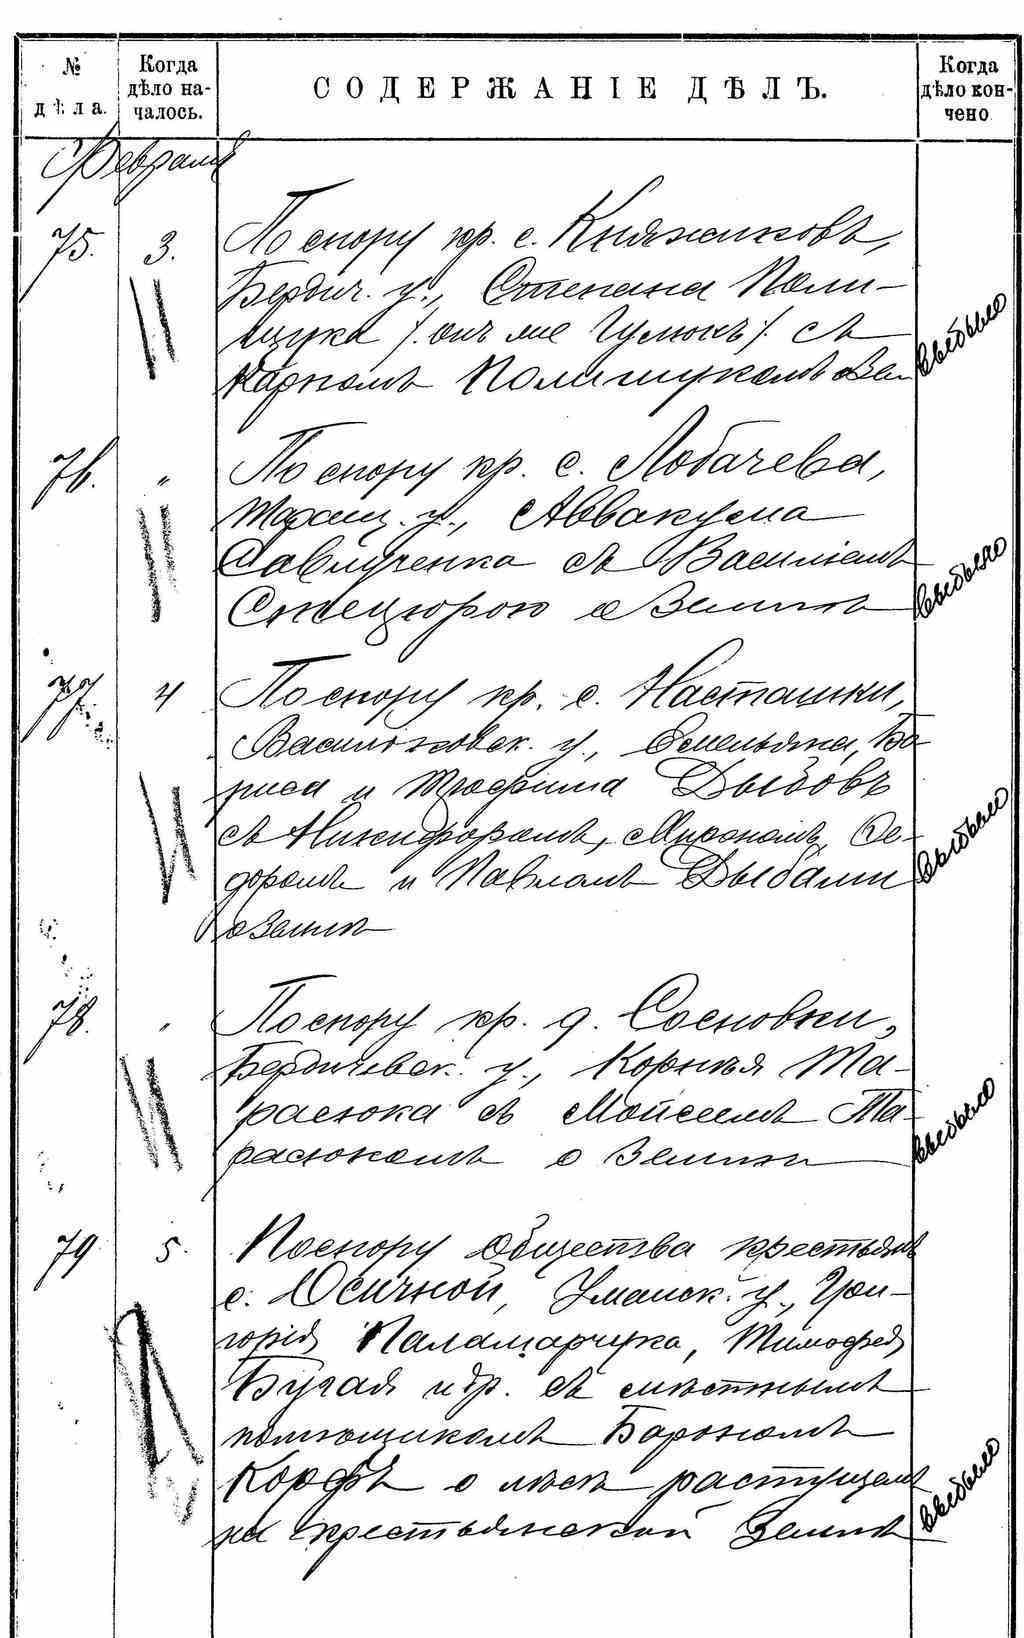 № дѣла.
Когда дѣло началось.
СОДЕРЖАНІЕ ДѢЛЪ.
Когда дѣло кончено
Февраля
75. 3. По спору кр. с. Княжиковъ,
Бердич. у., Степана Поли-
щука /. онъ же Гумюкъ /. съ
Карпомъ Полищукомъ о зем. выбыло
76. " По спору кр. с. Лобачева,
Таращ. у., Аввакума
Савлученка съ Василіемъ
Стецюрою о землѣ выбыло
77. 4 По спору кр. с. Насташки,
Васильковск. у., Емельяна, Бо-
риса и Трофима Дыбовъ
съ Никифоромъ, Мирономъ, Ѳе-
доромъ и Павломъ Дыбами выбыло
о землѣ
78. " По спору кр. д. Сосновки,
Бердичевск. у., Корнѣя Та-
расюка съ Мойсеемъ Та-
расюкомъ о землѣ выбыло
79 5. По спору общества крестьянъ
с. Осичной, Уманск. у., Гри-
горія Паламарчука, Тимофея
Бугая и др. съ мѣстнымъ
помѣщикомъ Барономъ
Корфъ о лѣсѣ растущемъ
на крестьянской землѣ выбыло